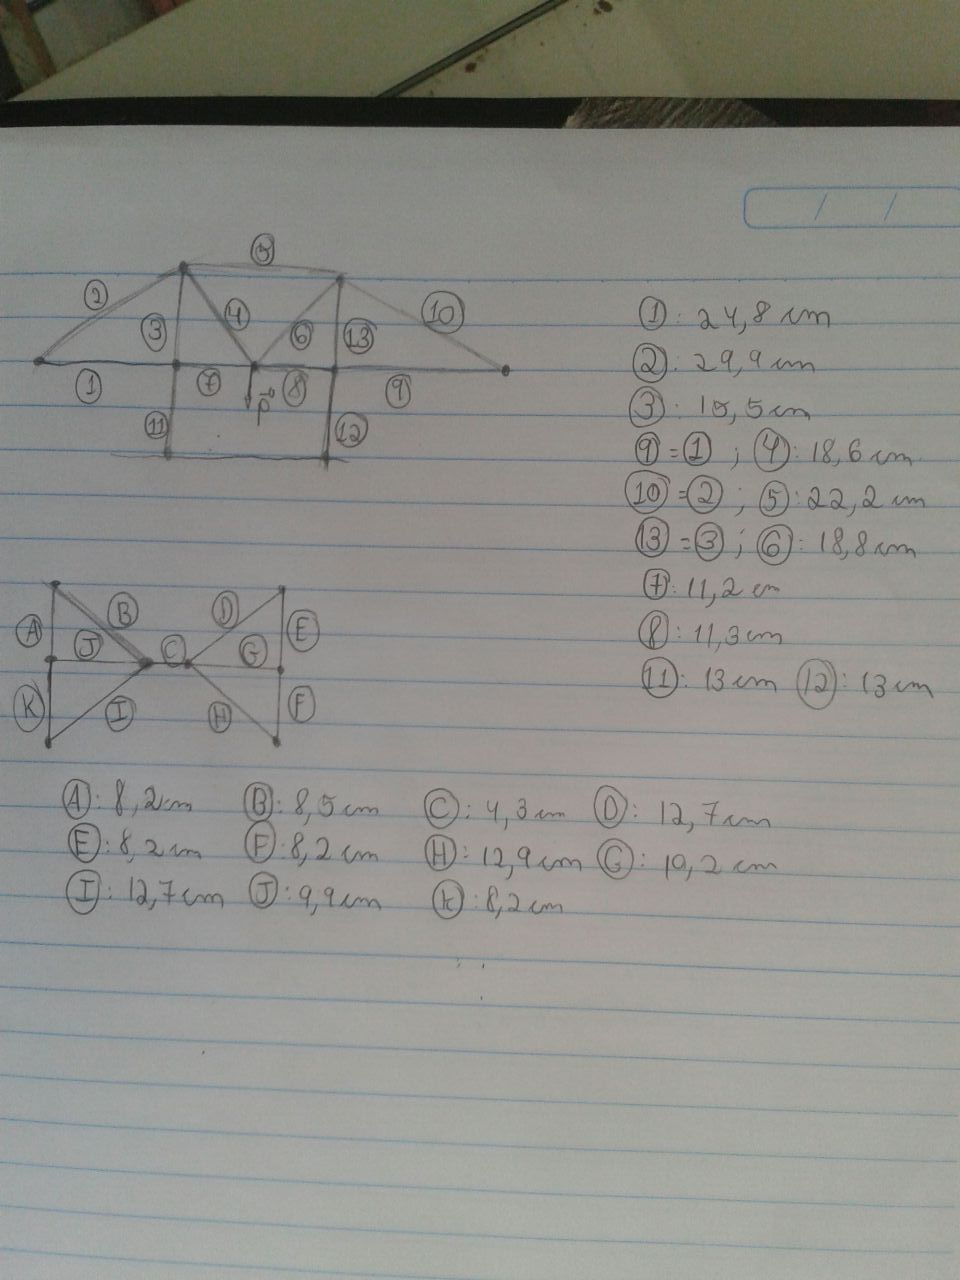 ⑤
② ③ ④ ⑥ ⑬ ⑩
① ⑦ P ⑧ ⑨
⑪ ⑫
①: 24,8 cm
②: 29,9 cm
③: 15,5 cm
⑨ = ① ; ④: 18,6 cm
⑩ = ② ; ⑤: 22,2 cm
⑬ = ③ ; ⑥: 18,8 cm
⑦: 11,2 cm
⑧: 11,3 cm
⑪: 13 cm ⑫: 13 cm
Ⓐ Ⓑ Ⓙ Ⓒ Ⓓ Ⓖ Ⓔ
Ⓚ Ⓘ Ⓗ Ⓕ
Ⓐ: 8,2 cm Ⓑ: 8,5 cm Ⓒ: 4,3 cm Ⓓ: 12,7 cm
Ⓔ: 8,2 cm Ⓕ: 8,2 cm Ⓗ: 12,9 cm Ⓖ: 10,2 cm
Ⓘ: 12,7 cm Ⓙ: 9,9 cm Ⓚ: 8,2 cm